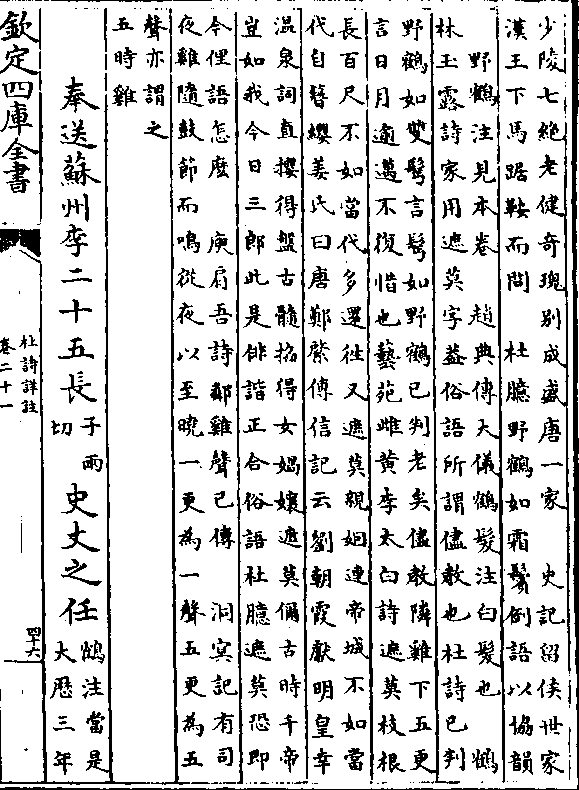 少陵七絶老健奇瑰别成盛唐一家　史記留侯世家
漢王下馬踞鞍而問　杜臆野鶴如霜鬢倒語以協韻
野鶴注見本卷　趙典傳大儀鶴髮注白髮也　鶴
林玉露詩家用遮莫字葢俗語所謂儘教也杜詩已判
野鶴如雙鬢言鬢如野鶴已判老矣儘教隣雞下五更
言日月逾邁不復惜也藝苑雌黄李太白詩遮莫枝根
長百尺不如當代多還往又遮莫親姻連帝城不如當
代自簮纓姜氏曰唐鄭綮傳信記云劉朝霞獻明皇幸
温泉詞直攖得盤古髓掐得女媧孃遮莫儞古時千帝
豈如我今日三郎此是俳諧正合俗語杜臆遮莫恐即
今俚語怎麽　庾肩吾詩鄰雞聲已傳　洞冥記有司
夜雞隨鼓節而鳴從夜以至曉一更為一聲五更為五
聲亦謂之
五時雞
奉送蘇州李二十五長子兩切史丈之任鶴注當是大厯三年
欽定四庫全書
杜詩詳註
卷二十一
四十六